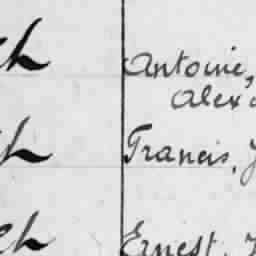 ch Antoine,
Alex
ch Francis, J
ch Ernest, J